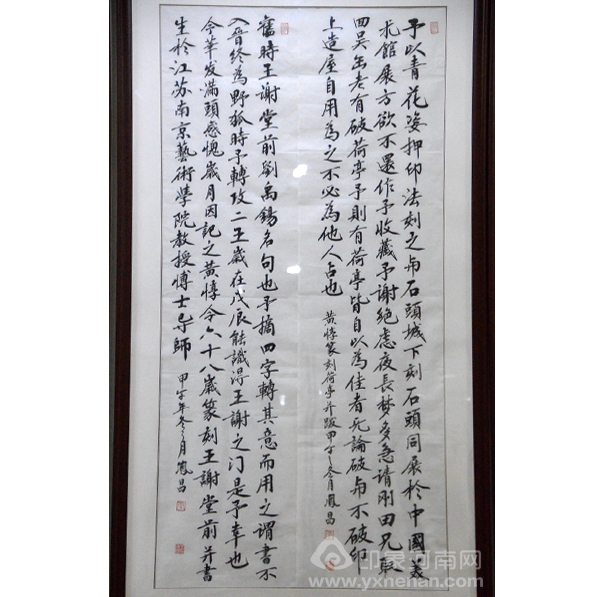 予以青花瓷押印法刻之与石頭城下刻石頭同展於中國美
术館展方欲不還作予收藏予謝絕慮夜長梦多急請刚田兄取
回吴缶老有破荷亭予則有荷亭皆自以為佳者无論破与不破印
上造屋自用為之不必為他人占也 黄惇篆刻荷亭并跋甲午冬月 昌
舊時王謝堂前劉禹錫名句也予摘四字轉其意而用之謂書不
入晉終為野狐時予轉攻二王歲在戊辰能識得王謝之门是予幸也
今华发滿頭感愧歲月因記之黄惇今六十八歲篆刻王謝堂前并書
生於江苏南京藝術學院教授博士导師 甲午年冬月 昌
印象河南网
www.yxhenan.com